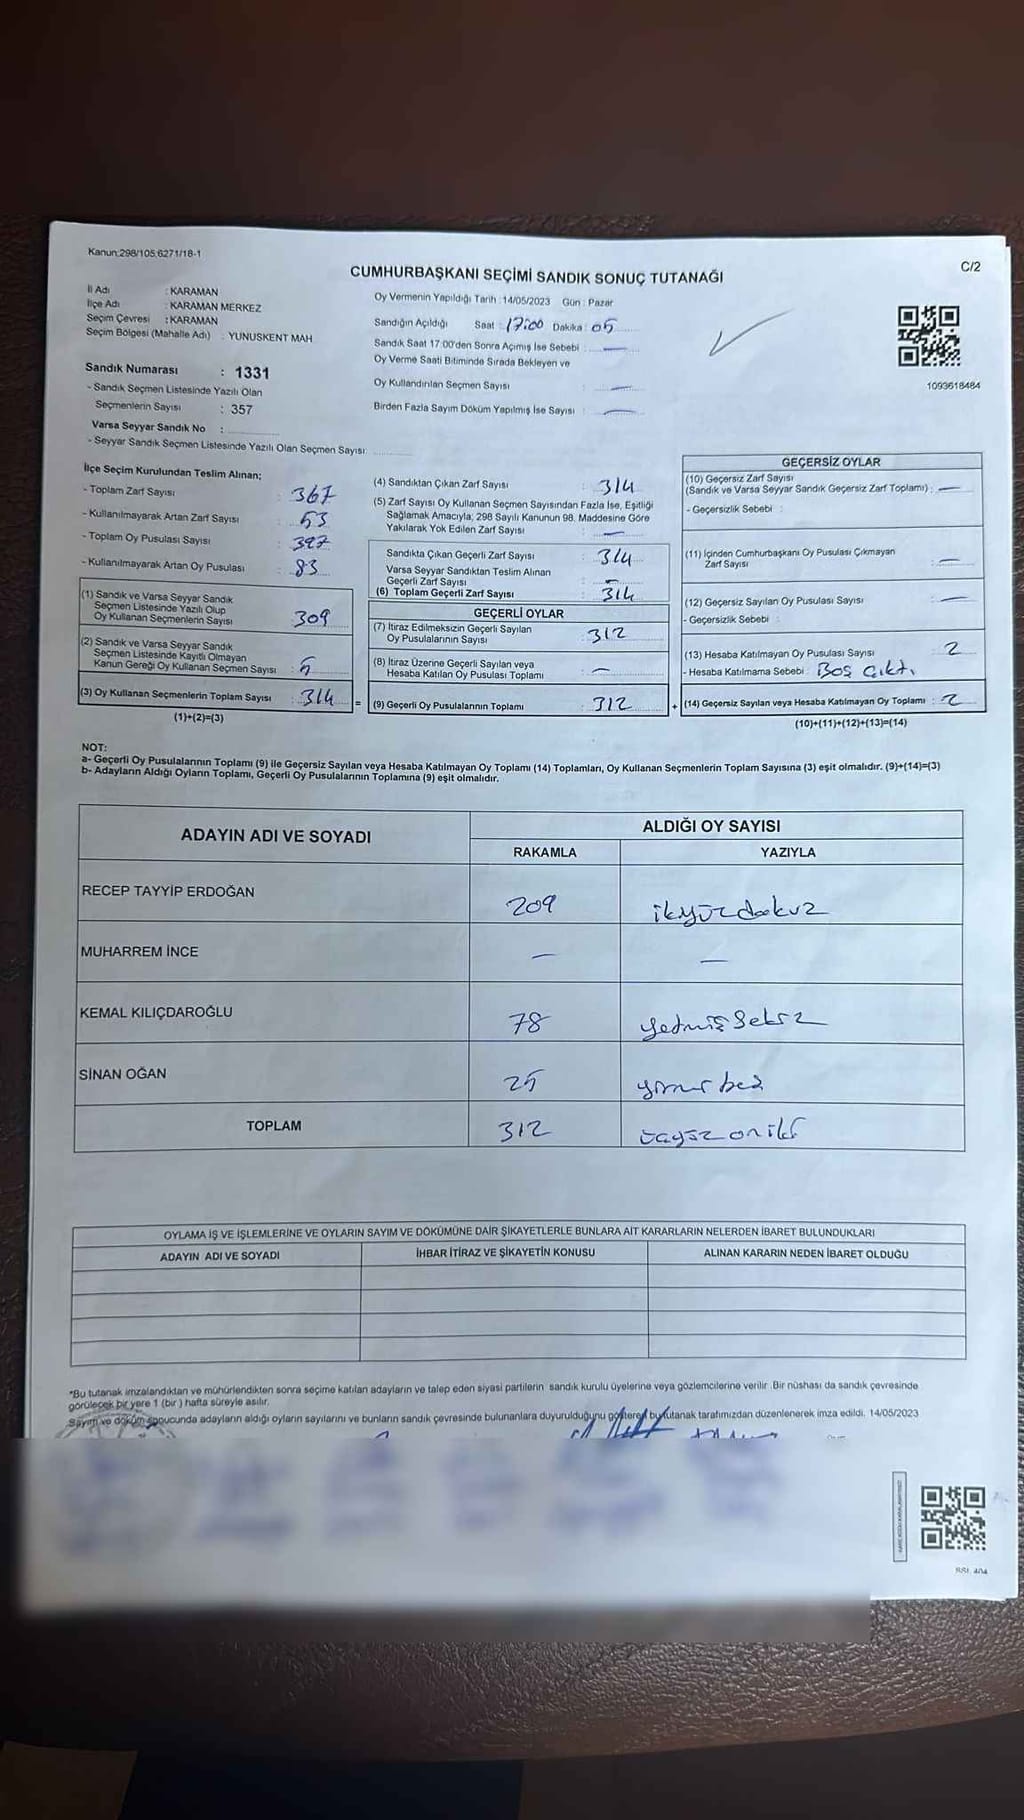 Kanun;298/105;6271/18-1
CUMHURBAŞKANI SEÇİMİ SANDIK SONUÇ TUTANAĞI
C/2
İl Adı : KARAMAN
İlçe Adı : KARAMAN MERKEZ
Seçim Çevresi : KARAMAN
Seçim Bölgesi (Mahalle Adı) : YUNUSKENT MAH
Oy Vermenin Yapıldığı Tarih : 14/05/2023 Gün : Pazar
Sandığın Açıldığı Saat : 17:00 Dakika : 05
Sandık Saat 17:00'den Sonra Açımış İse Sebebi : —
Oy Verme Saati Bitiminde Sırada Bekleyen ve
Oy Kullandırılan Seçmen Sayısı : —
Birden Fazla Sayım Döküm Yapılmış İse Sayısı : —
1093618484
Sandık Numarası : 1331
- Sandık Seçmen Listesinde Yazılı Olan
Seçmenlerin Sayısı : 357
Varsa Seyyar Sandık No :
- Seyyar Sandık Seçmen Listesinde Yazılı Olan Seçmen Sayısı:
İlçe Seçim Kurulundan Teslim Alınan;
- Toplam Zarf Sayısı : 367
- Kullanılmayarak Artan Zarf Sayısı : 53
- Toplam Oy Pusulası Sayısı : 397
- Kullanılmayarak Artan Oy Pusulası : 83
(1) Sandık ve Varsa Seyyar Sandık
Seçmen Listesinde Yazılı Olup
Oy Kullanan Seçmenlerin Sayısı : 309
(2) Sandık ve Varsa Seyyar Sandık
Seçmen Listesinde Kayıtlı Olmayan
Kanun Gereği Oy Kullanan Seçmen Sayısı : 5
(3) Oy Kullanan Seçmenlerin Toplam Sayısı : 314
(1)+(2)=(3)
(4) Sandıktan Çıkan Zarf Sayısı : 314
(5) Zarf Sayısı Oy Kullanan Seçmen Sayısından Fazla İse, Eşitliği
Sağlamak Amacıyla; 298 Sayılı Kanunun 98. Maddesine Göre
Yakılarak Yok Edilen Zarf Sayısı : —
Sandıkta Çıkan Geçerli Zarf Sayısı : 314
Varsa Seyyar Sandıktan Teslim Alınan
Geçerli Zarf Sayısı : —
(6) Toplam Geçerli Zarf Sayısı : 314
GEÇERLİ OYLAR
(7) İtiraz Edilmeksizin Geçerli Sayılan
Oy Pusulalarının Sayısı : 312
(8) İtiraz Üzerine Geçerli Sayılan veya
Hesaba Katılan Oy Pusulası Toplamı : —
= (9) Geçerli Oy Pusulalarının Toplamı : 312
GEÇERSİZ OYLAR
(10) Geçersiz Zarf Sayısı
(Sandık ve Varsa Seyyar Sandık Geçersiz Zarf Toplamı) : —
- Geçersizlik Sebebi :
(11) İçinden Cumhurbaşkanı Oy Pusulası Çıkmayan
Zarf Sayısı : —
(12) Geçersiz Sayılan Oy Pusulası Sayısı : —
- Geçersizlik Sebebi :
(13) Hesaba Katılmayan Oy Pusulası Sayısı : 2
- Hesaba Katılmama Sebebi : Boş çıktı
+ (14) Geçersiz Sayılan veya Hesaba Katılmayan Oy Toplamı : 2
(10)+(11)+(12)+(13)=(14)
NOT:
a- Geçerli Oy Pusulalarının Toplamı (9) ile Geçersiz Sayılan veya Hesaba Katılmayan Oy Toplamı (14) Toplamları, Oy Kullanan Seçmenlerin Toplam Sayısına (3) eşit olmalıdır. (9)+(14)=(3)
b- Adayların Aldığı Oyların Toplamı, Geçerli Oy Pusulalarının Toplamına (9) eşit olmalıdır.
ADAYIN ADI VE SOYADI
ALDIĞI OY SAYISI
RAKAMLA YAZIYLA
RECEP TAYYİP ERDOĞAN 209 ikiyüzdokuz
MUHARREM İNCE — —
KEMAL KILIÇDAROĞLU 78 yetmiş sekiz
SİNAN OĞAN 25 yirmi beş
TOPLAM 312 üçyüz oniki
OYLAMA İŞ VE İŞLEMLERİNE VE OYLARIN SAYIM VE DÖKÜMÜNE DAİR ŞİKAYETLERLE BUNLARA AİT KARARLARIN NELERDEN İBARET BULUNDUKLARI
ADAYIN ADI VE SOYADI İHBAR İTİRAZ VE ŞİKAYETİN KONUSU ALINAN KARARIN NEDEN İBARET OLDUĞU
*Bu tutanak imzalandıktan ve mühürlendikten sonra seçime katılan adayların ve talep eden siyasi partilerin sandık kurulu üyelerine veya gözlemcilerine verilir. Bir nüshası da sandık çevresinde
görülecek bir yere 1 (bir) hafta süreyle asılır.
Sayım ve döküm sonucunda adayların aldığı oyların sayılarını ve bunların sandık çevresinde bulunanlara duyurulduğunu gösteren bu tutanak tarafımızdan düzenlenerek imza edildi. 14/05/2023